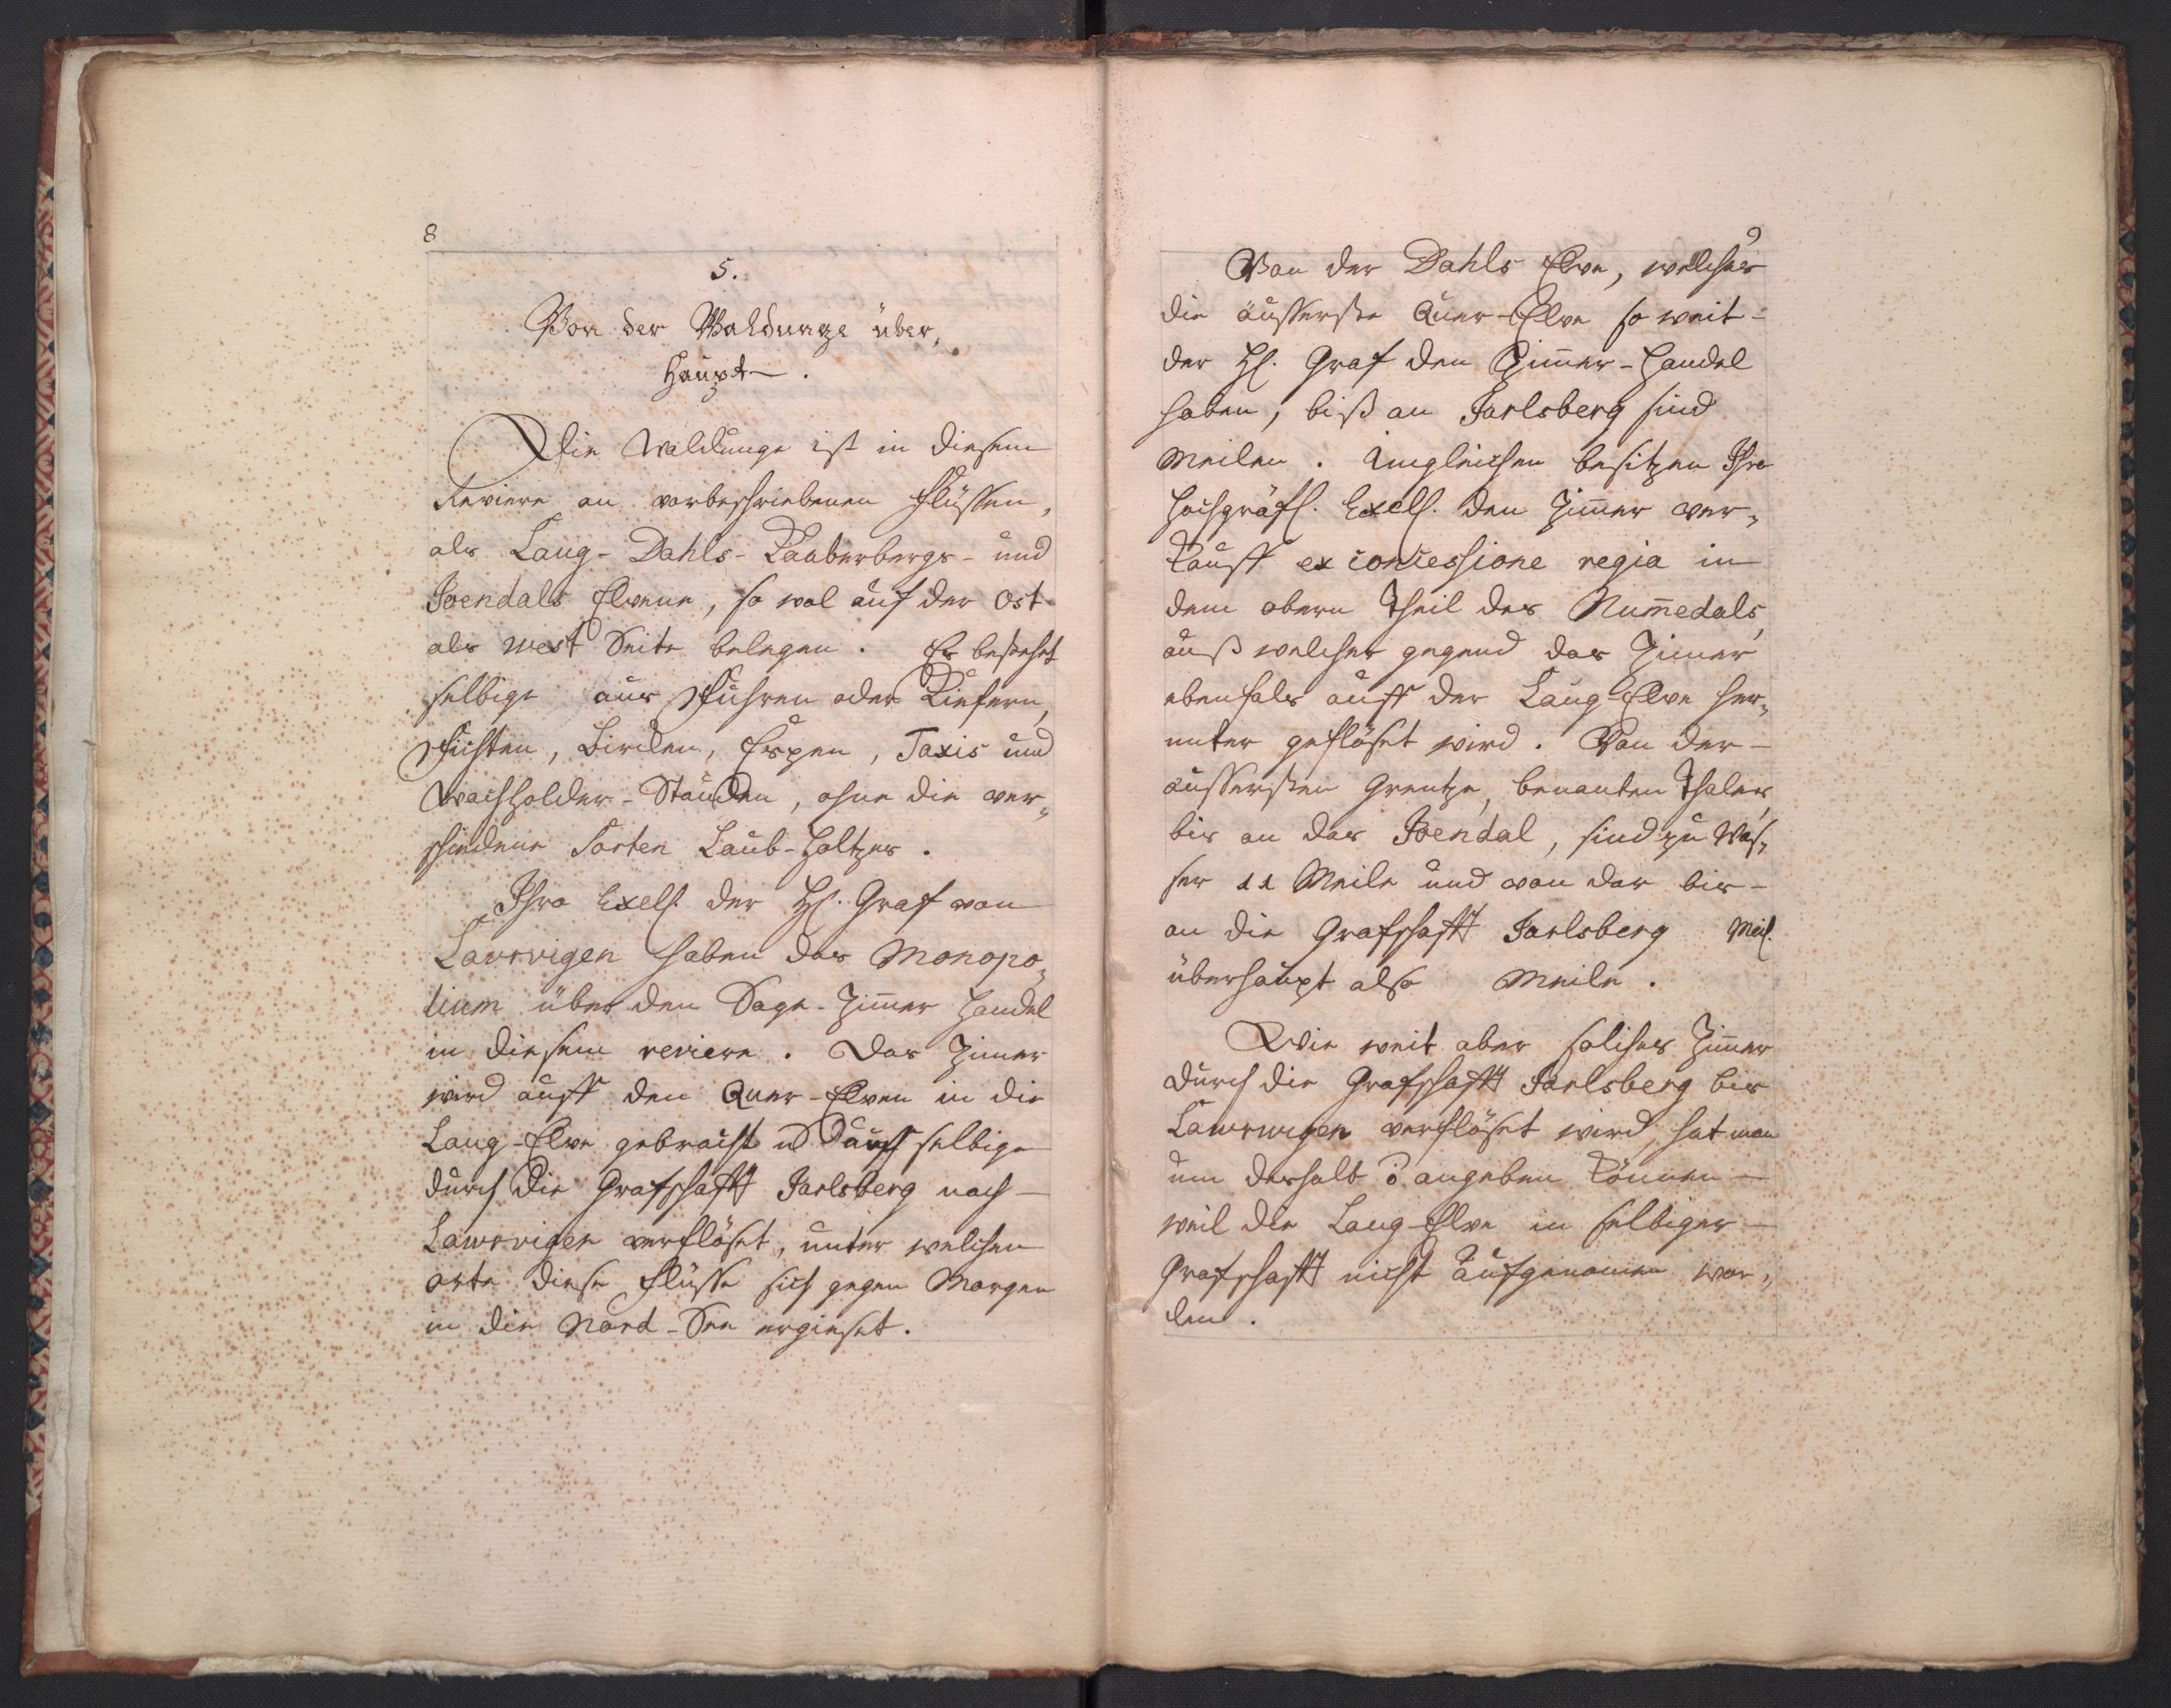 8
5.
Von der Waldunge über,
haupt.
Die Waldunge ist in diesem
Reviere an vorbeschriebenen Flüssen,
als Laug- Dahls- Kaaberbergs- und
Joendals Elvene, so wol auf der Ost-
als West Seite belegen. Es bestehet
selbige aus Fuhren oder Kiefern,
Fichten, Bircken, Espen, Taxis und
Wachholder-Stauden, ohne die ver„
schiedene Sorten Laub-Holtzes.
Ihro Excell. der H. Graf von
Laurvigen haben das Monopo„
lium über den Sage-Zim̃er Handel
in diesem reviere. Das Zim̃er
wird auff den Quer-Elven in die
Laug-Elve gebracht u auff selbige
durch die Grafschafft Jarlsberg nach
Lawrvigen verflöset, unter welchen
orte diese Flüsse sich gegen Morgen
in die Nord-See ergieset.
9
Von der Dahls Elve, welches
die äusserste Quer-Elve so weit
der H. Graf den Zim̃er-Handel
haben, biß an Jarlsberg sind
Meilen. Imgleichen besitzen Ihre
Hochgräfl. Excell. den Zim̃er ver„
kauff ex concessione regia in
dem obern Theil des Num̃edals,
auß welcher gegend das Zim̃er
ebenfals auff der Laug Elve her„
unter geflöset wird. Von der
äussersten Grentze, benanten Thales,
bis an das Joendal, sind zu Was„
ser 11 Meile und von dar bis
an die Grafschafft Jarlsberg Meil.
überhaupt also Meile.
Wie weit aber solches Zim̃er
durch die Grafschafft Jarlsberg bis
Lawrwigen verflöset wird, hat man
um deshalb angeben können
weil die Laug-Elve in selbiger
Grafschafft nicht aufgenomen wor„
den.